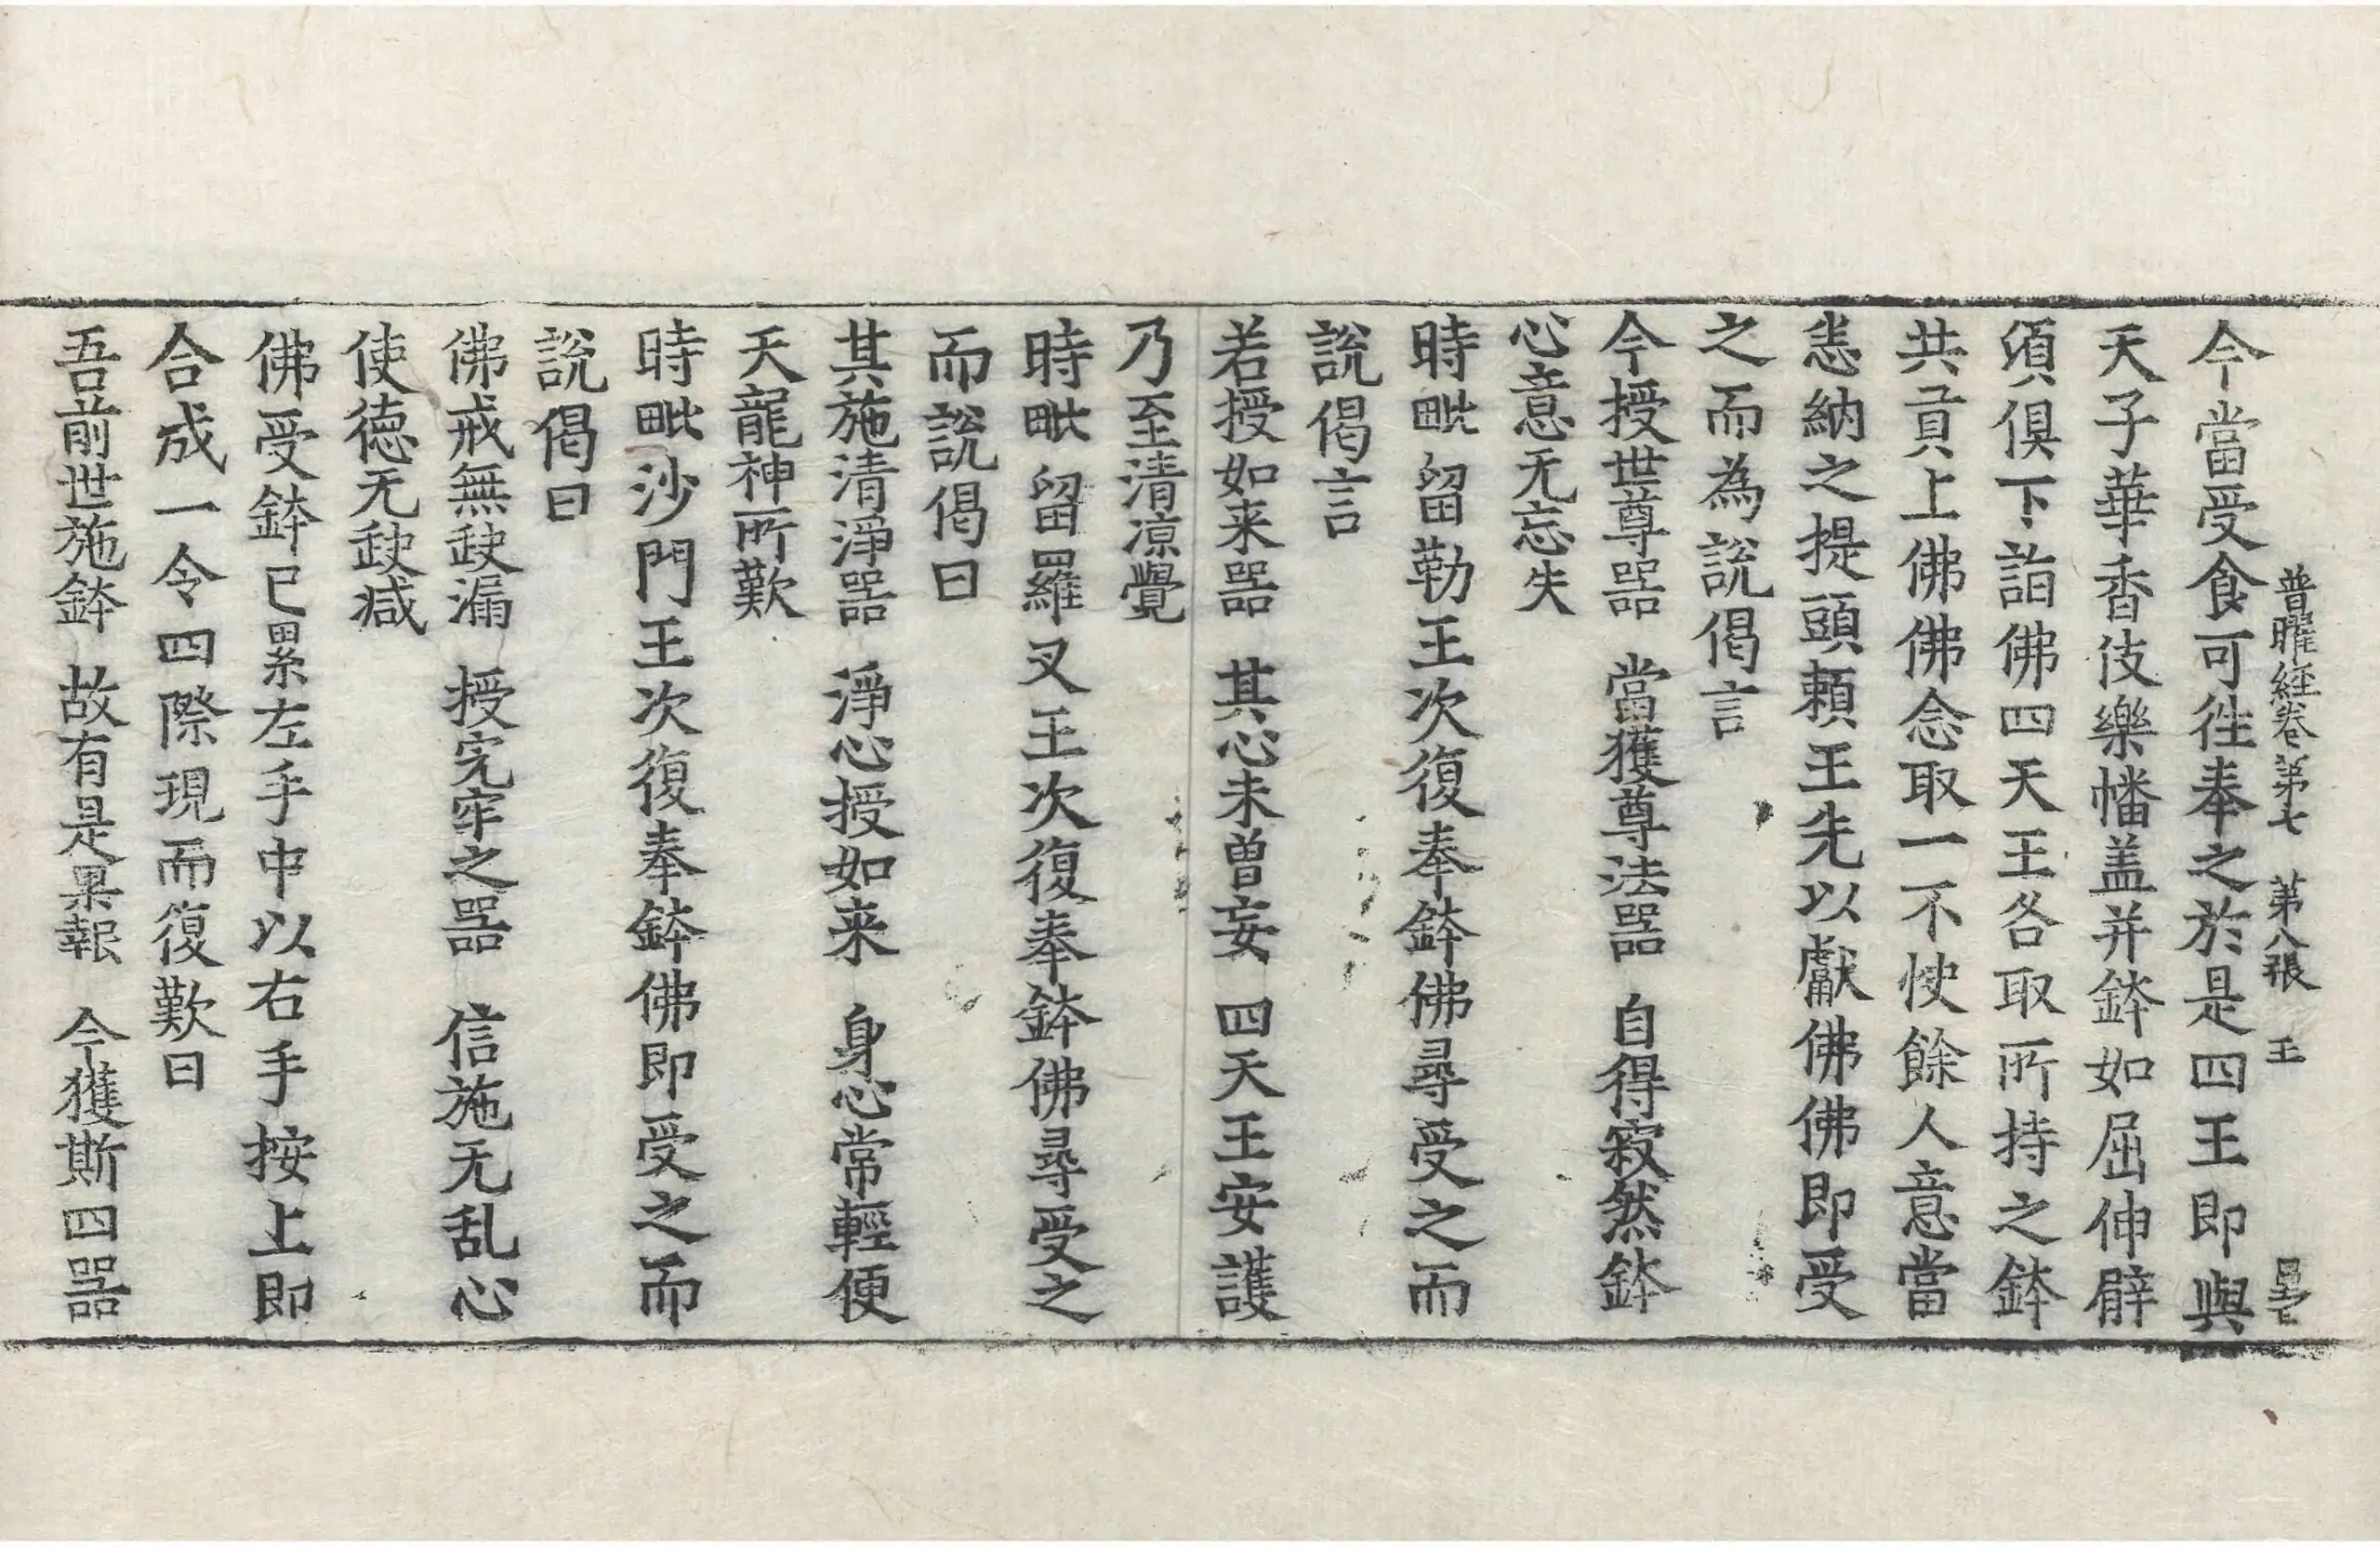 普曜経卷第七　第八張　王
今當受食可往奉之於是四王即與
天子華香伎樂幡盖并鉢如屈伸臂
湏俱下詣佛四天王各取所持之鉢
共貢上佛佛念取一不快餘人意當
恚納之提頭賴王先以獻佛佛即受
之而為說偈言
今授世尊器　當獲尊法器　自得寂然鉢
心意无忘失
時毗留勒王次復奉鉢佛尋受之而
說偈言
若授如来器　其心未曽妄　四天王安護
乃至清凉覺
時毗留羅叉王次復奉鉢佛尋受之
而說偈曰
其施清淨器　淨心授如来　身心常輕便
天龍神所歎
時毗沙門王次復奉鉢佛即受之而
說偈曰
佛戒無𡙇漏　授完牢之器　信施无乱心
使德无𡙇减
佛受鉢已累左手中以右手按上即
合成一令四際現而復歎曰
吾前世施鉢　故有是果報　今獲斯四器